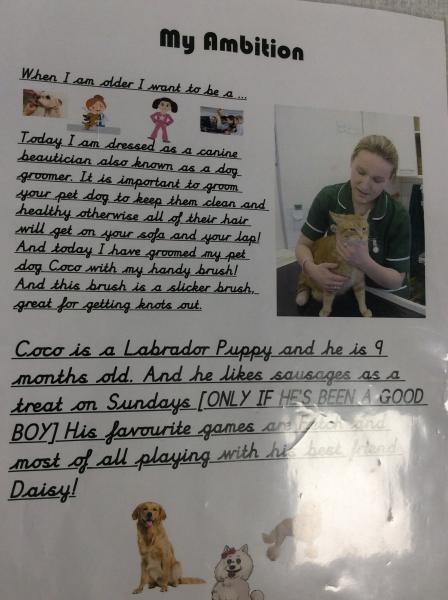 My Ambition
When I am older I want to be a ...
Today I am dressed as a canine
beautician also known as a dog
groomer. It is important to groom
your pet dog to keep them clean and
healthy otherwise all of their hair
will get on your sofa and your lap!
And today I have groomed my pet
dog Coco with my handy brush!
And this brush is a slicker brush,
great for getting knots out.
Coco is a Labrador Puppy and he is 9
months old. And he likes sausages as a
treat on Sundays [ONLY IF HE'S BEEN A GOOD
BOY] His favourite games are Fetch and
most of all playing with his best friend
Daisy!